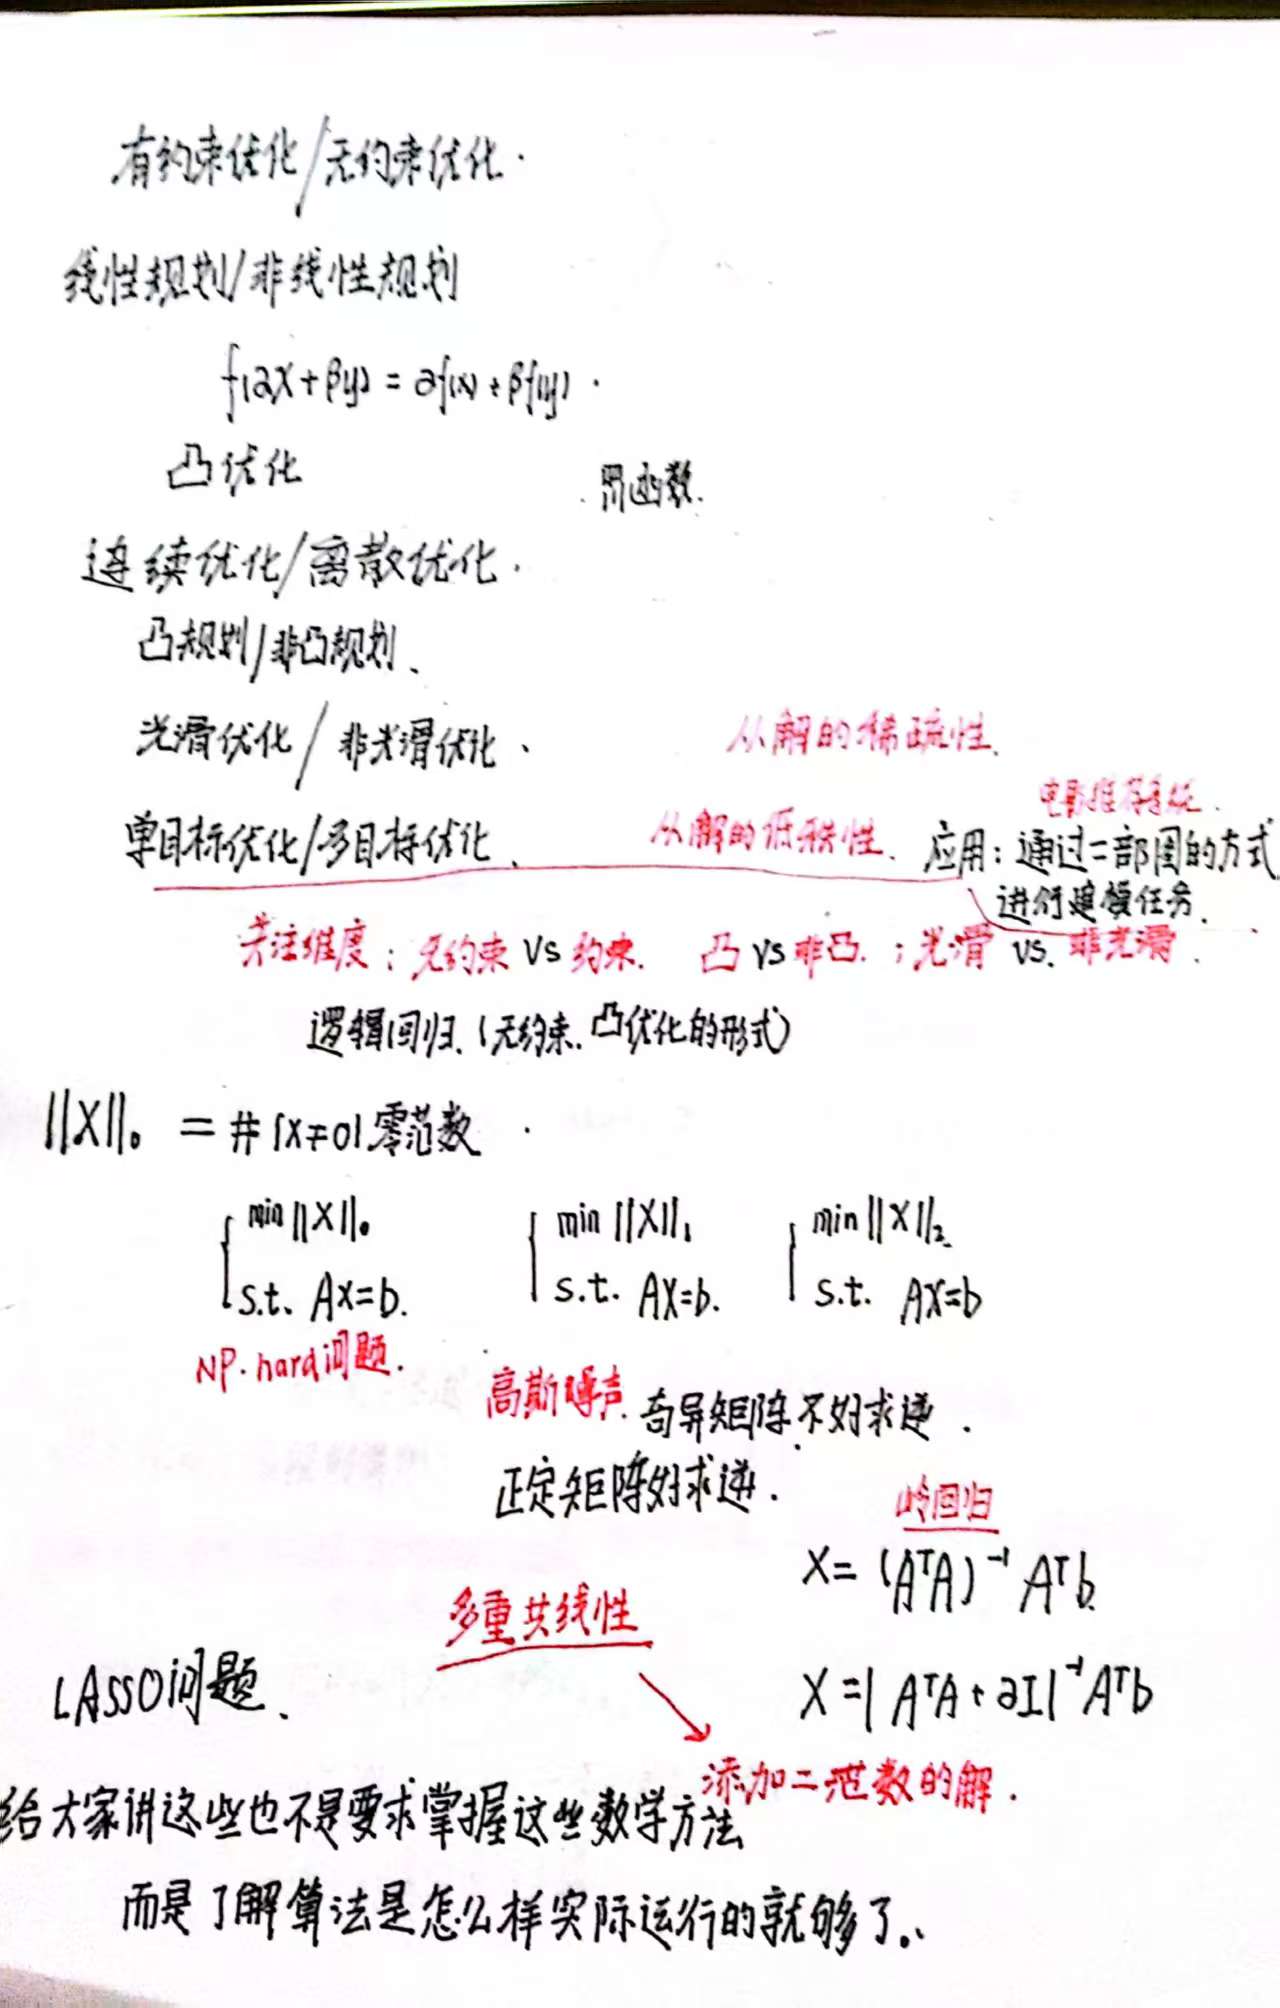 有约束优化/无约束优化.
线性规划/非线性规划
f(αx+βy)=αf(x)+βf(y).
凸优化
罚函数.
连续优化/离散优化.
凸规划/非凸规划、
光滑优化/非光滑优化、
从解的稀疏性.
电影推荐系统.
单目标优化/多目标优化、
从解的低秩性.
应用:通过二部图的方式
进行建模任务.
关注维度:无约束 VS 约束. 凸 VS 非凸.;光滑 VS. 非光滑.
逻辑回归.(无约束.凸优化的形式)
||X||₀ = #|x≠0| 零范数.
min||X||₀ min||X||₁ min||X||₂
s.t. Ax=b. s.t. AX=b. s.t. AX=b
NP.hard问题.
高斯噪声.奇异矩阵不好求逆.
正定矩阵好求逆.
岭回归
X=(AᵀA)⁻¹Aᵀb.
多重共线性
LASSO问题、
X=|AᵀA+αI|⁻¹Aᵀb
添加二范数的解.
给大家讲这些也不是要求掌握这些数学方法
而是了解算法是怎么样实际运行的就够了。